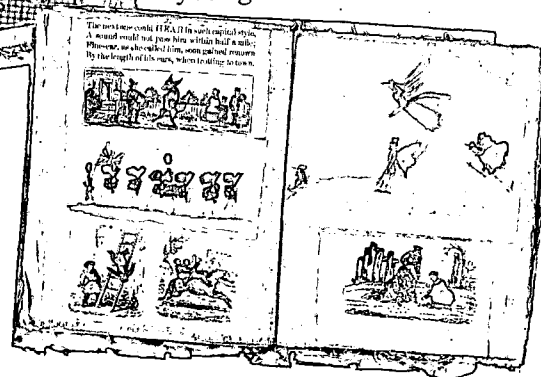 The next one could HEAR in such capital style,
A sound could not pass him within half a mile;
as she called him, soon gained renown
By the length of his ears, when trotting to town.